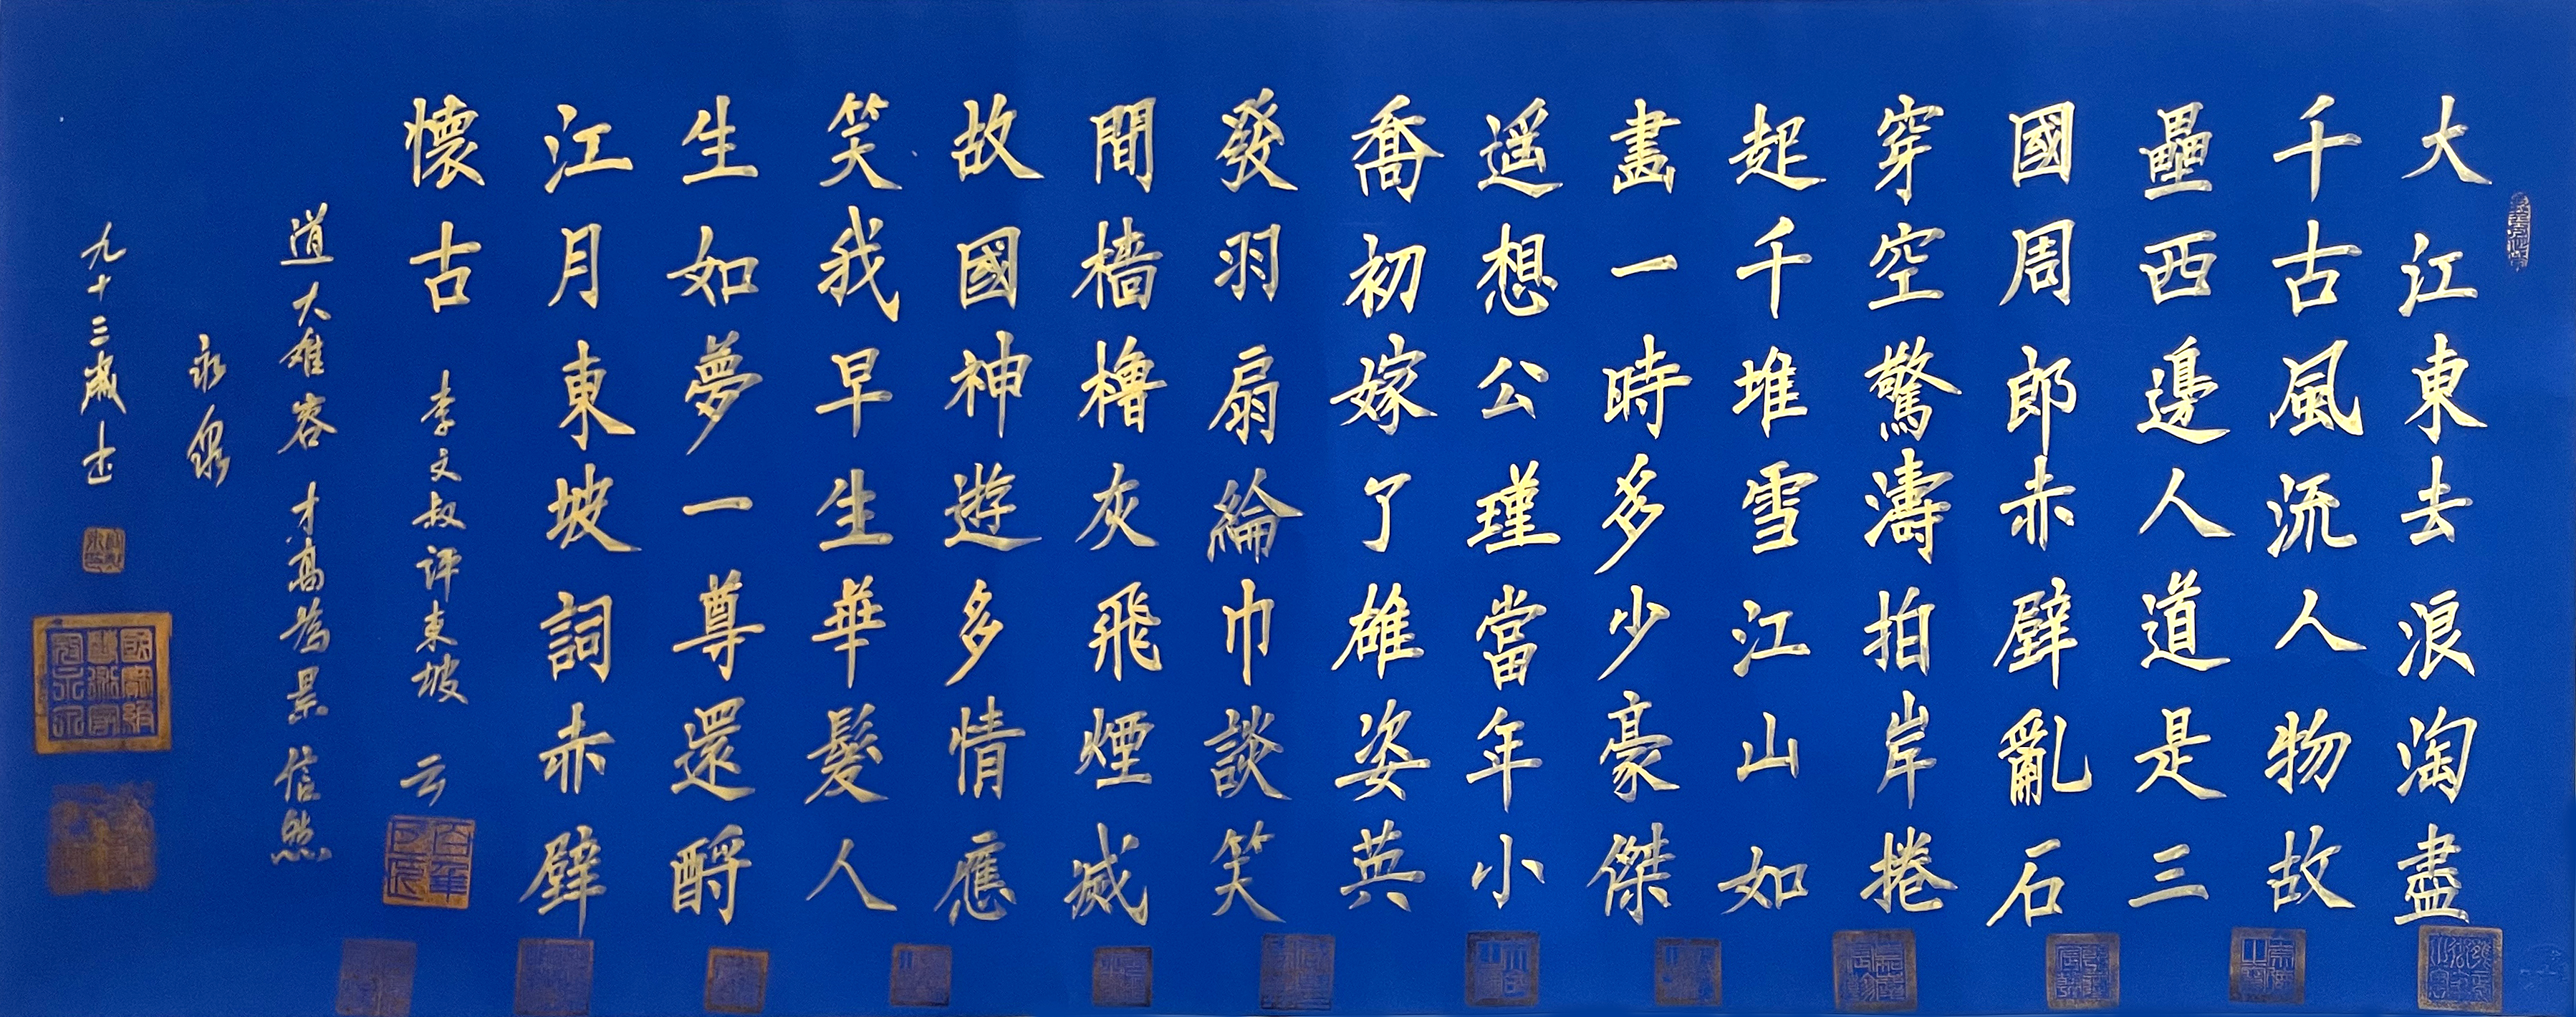 大江東去浪淘盡
千古風流人物故
壘西邊人道是三
國周郎赤壁亂石
穿空驚濤拍岸捲
起千堆雪江山如
畫一時多少豪傑
遥想公瑾當年小
喬初嫁了雄姿英
發羽扇綸巾談笑
間檣櫓灰飛煙滅
故國神遊多情應
笑我早生華髮人
生如夢一尊還酹
江月東坡詞赤壁
懷古 李文叔評東坡 云
道大难容 才高為累 信然
永泉
九十三歲士